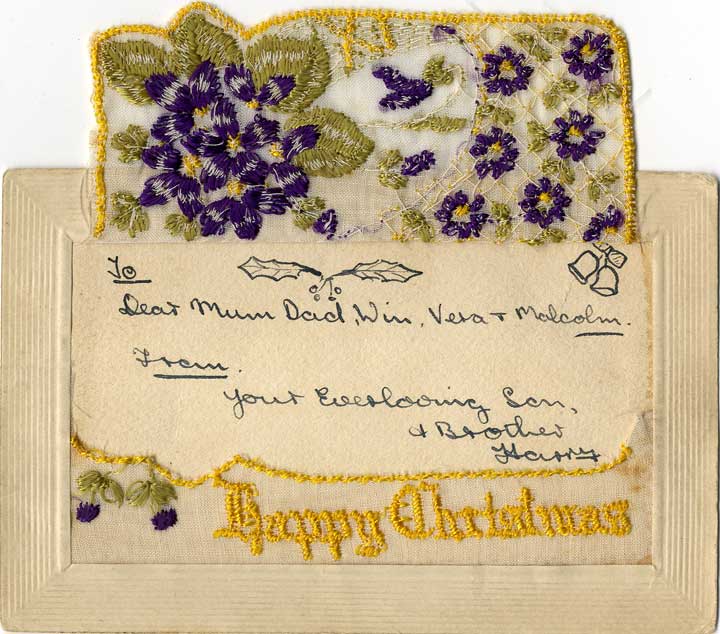 To
Dear Mum Dad, Win, Vera + Malcolm.
From.
Your Everloving Son,
& Brother
Harry
Happy Christmas